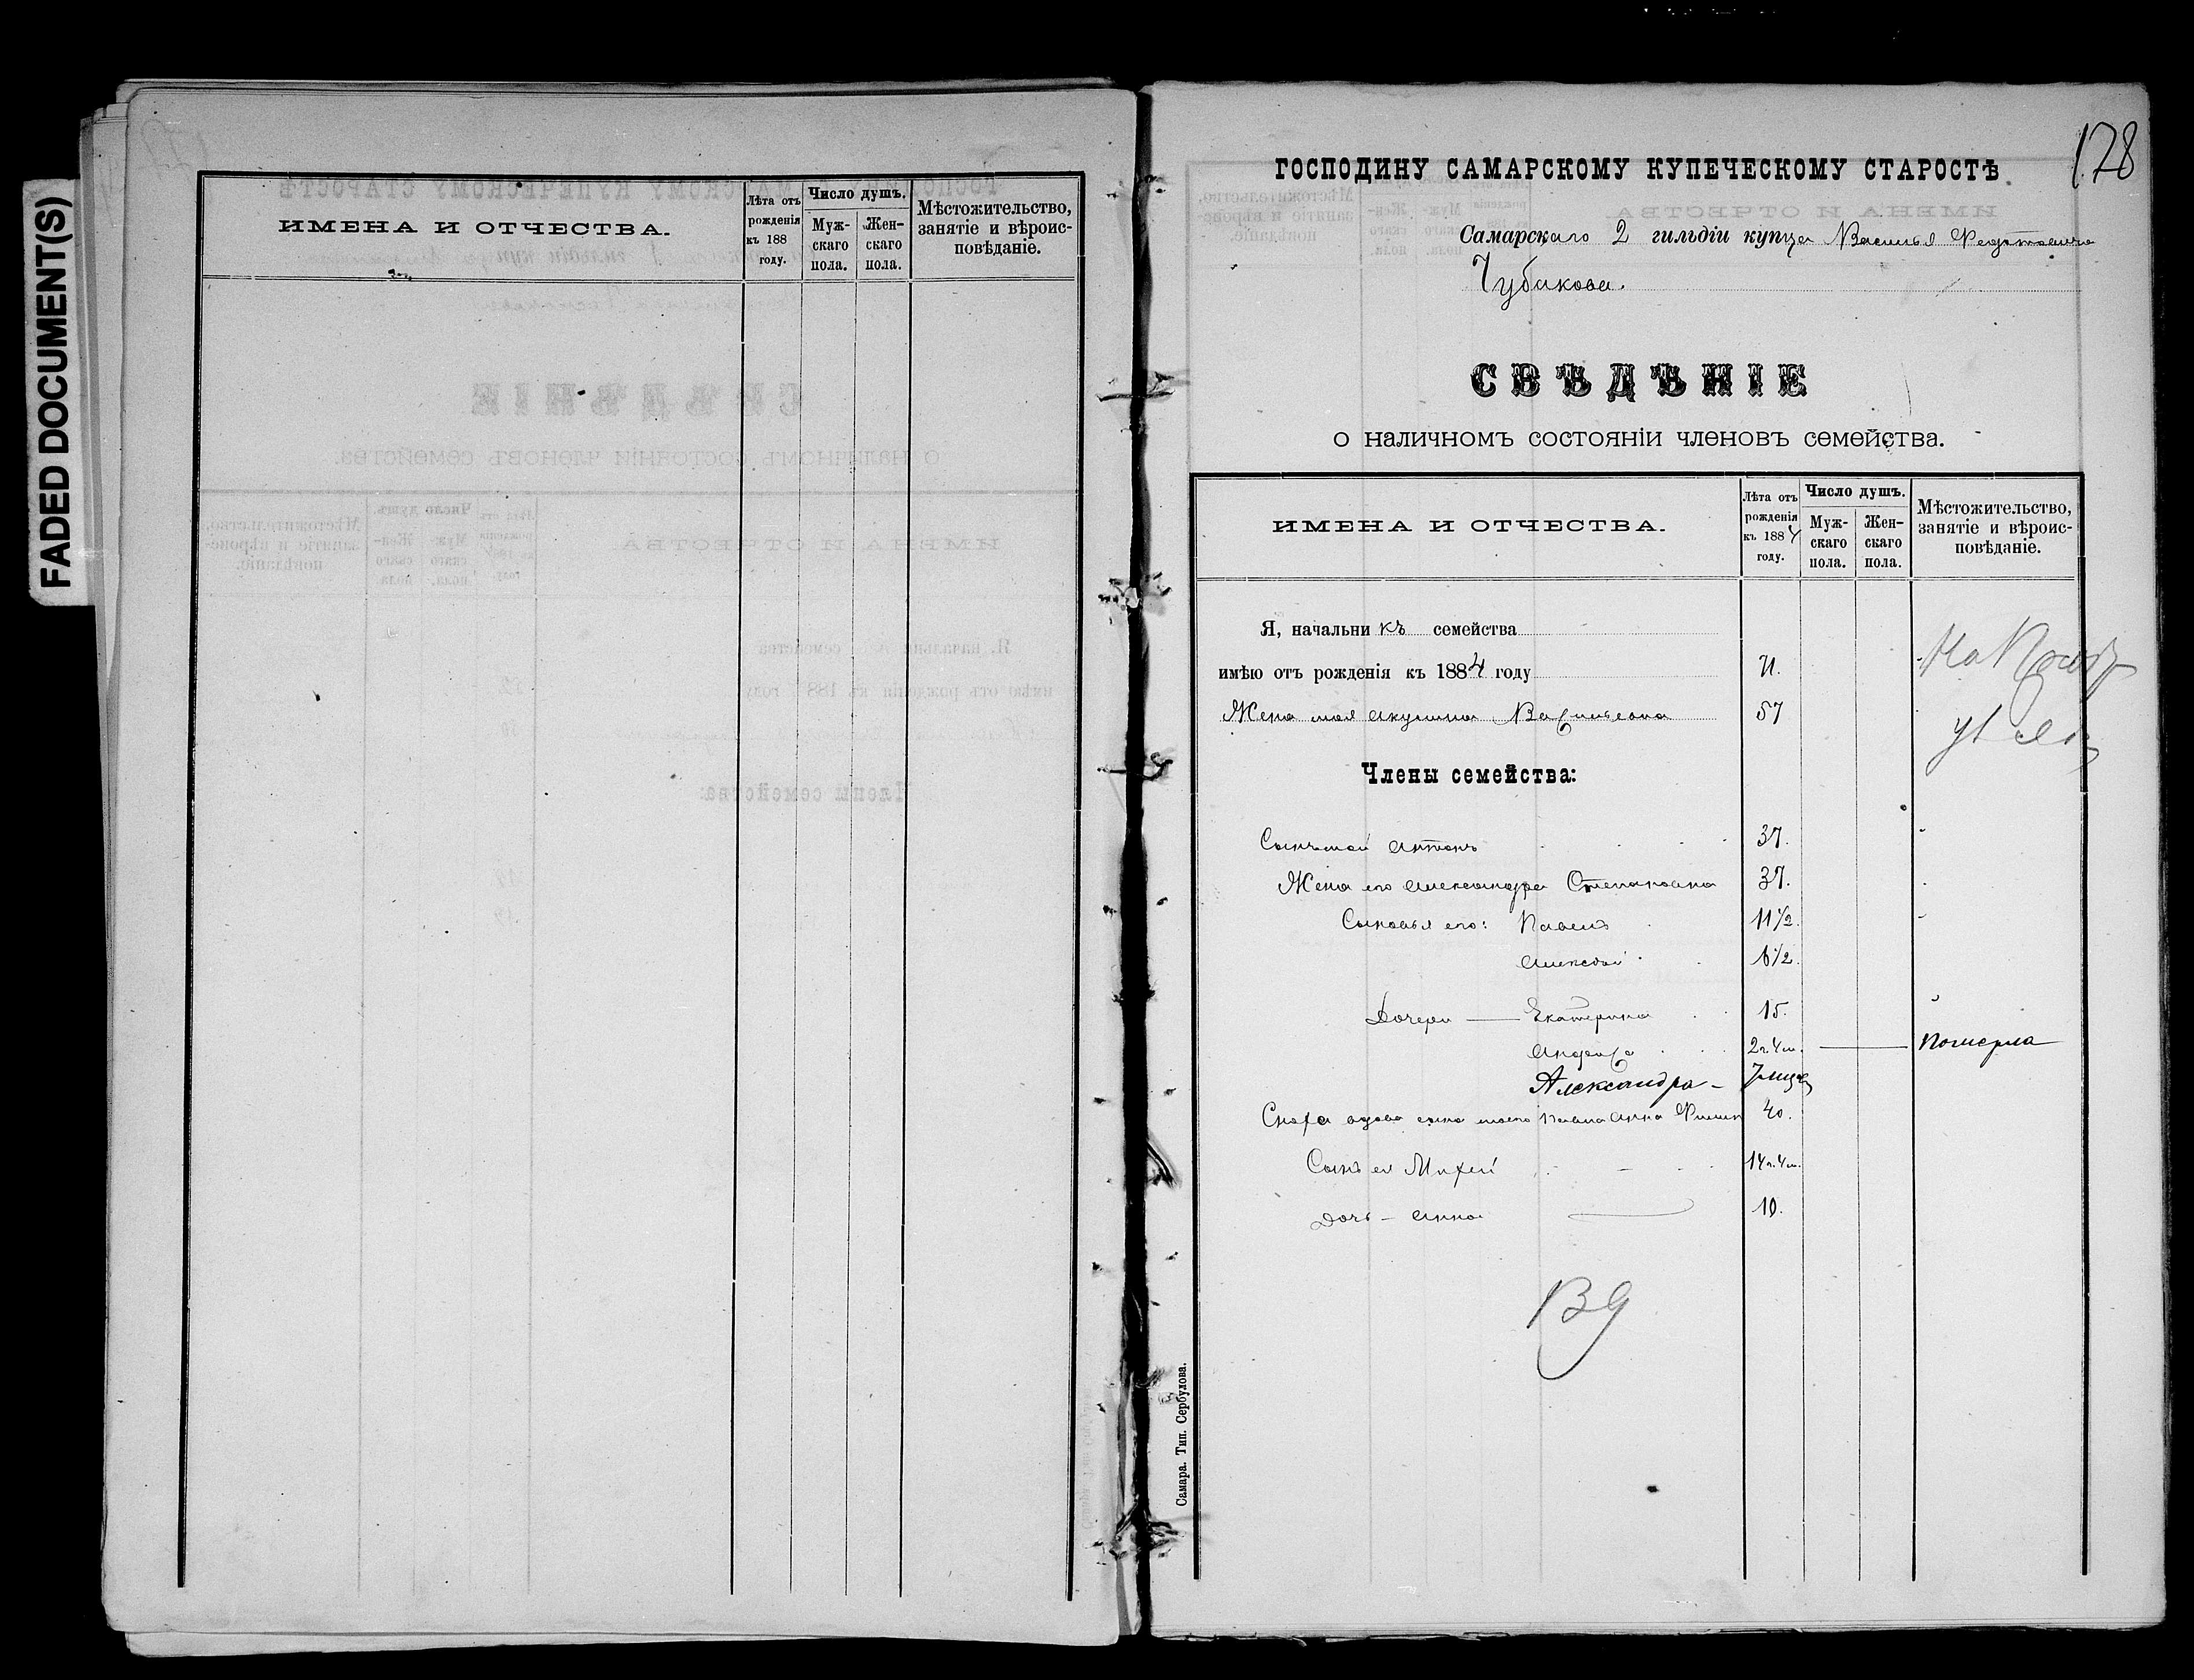 FADED DOCUMENT(S)
ИМЕНА И ОТЧЕСТВА.
Лѣта отъ рожденія къ 188 году.
Число душъ.
Мужскаго пола.
Женскаго пола.
Мѣстожительство, занятіе и вѣроисповѣданіе.
128
ГОСПОДИНУ САМАРСКОМУ КУПЕЧЕСКОМУ СТАРОСТѢ
Самарскаго 2 гильдіи купца Василья
Чубакова.
СВѢДѢНІЕ
о наличномъ состояніи членовъ семейства.
ИМЕНА И ОТЧЕСТВА.
Лѣта отъ рожденія къ 1884 году.
Число душъ.
Мужскаго пола.
Женскаго пола.
Мѣстожительство, занятіе и вѣроисповѣданіе.
Я, начальникъ семейства
имѣю отъ рожденія къ 1884 году 71.
Жена моя Акулина Васильевна 57
Члены семейства:
Сынъ мой Антонъ 37.
Жена его Александра Степановна 37.
Сыновья его: Павелъ 11 1/2.
Алексѣй 6 1/2.
Дочери — Екатерина 15.
2 г. 4 м. — померла
Александра –
Сноха вдова сына моего Павла Анна 40.
Сынъ ея Михей 14 г. 4 м.
Дочь – Анна 10.
Самара. Тип. Сербулова.